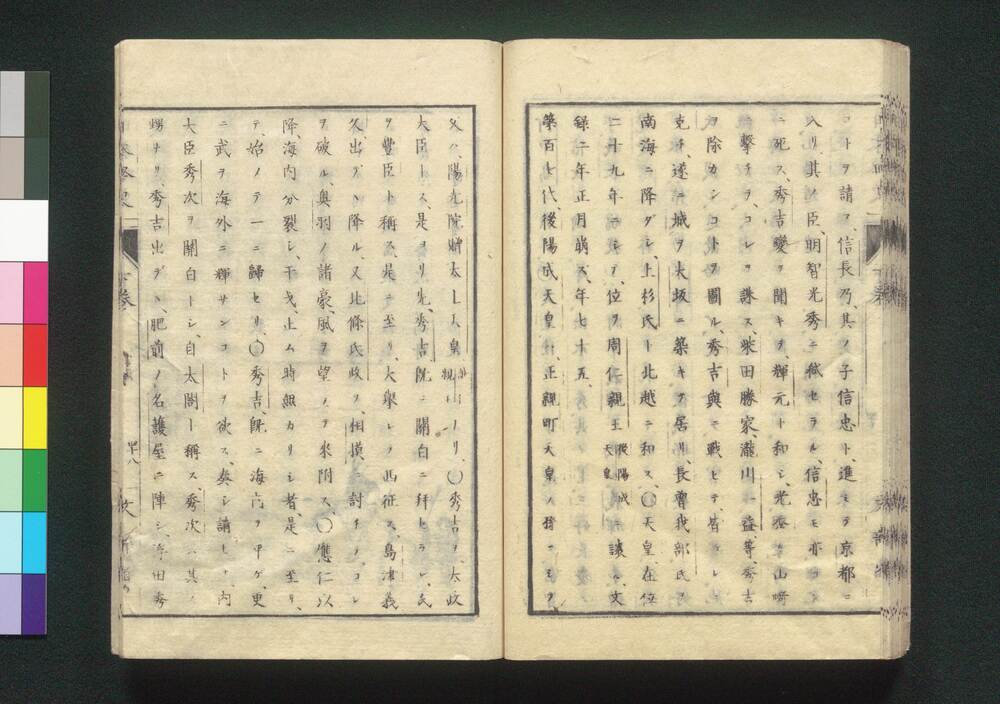 コトヲ請フ、信長乃、其ノ子信忠ト、進ミテ京都ニ
入リ其ノ臣、明智光秀ニ弑セラル、信忠モ亦コヽ
ニ死ス、秀吉變ヲ聞キテ、輝元ト和シ、光秀ヲ山崎
ニ撃チテ、コレヲ誅ス、柴田勝家瀧川一益等、秀吉
ヲ除カンコトヲ圖ル、秀吉與ニ戰ヒテ皆コレニ
克チ、遂ニ城ヲ大坂ニ築キテ居リ、長曾我部氏ヲ
南海ニ降ダシ、上杉氏ト北越ニ和ス、〇天皇、在位
二十九年ニシテ、位ヲ周仁親王後陽成天皇ニ讓ル、文
祿二年正月崩ス、年七十五、
第百七代、後陽成天皇ハ、正親町天皇ノ孫ニマシテ
父ハ、陽光院贈太上天皇ナリ、〇秀吉ヲ、太政
大臣トス、是ヨリ先、秀吉既ニ關白ニ拜セラレ、氏
ヲ豐臣ト稱ス、是ニ至リ、大擧シテ西征ス、島津義
久出デヽ降ル、又北條氏政ヲ、相摸ニ討チテ、コレ
ヲ破ル、奥羽ノ諸豪、風ヲ望ノテ來附ス、〇應仁以
降、海内分裂シ、干戈、止ム時無カリシ者、是ニ至リ
テ、始メテ一ニ歸セリ、〇秀吉、既ニ海内ヲ平ゲ、更
ニ武ヲ海外ニ輝サンコトヲ欲ス、奏シ請ヒテ、内
大臣秀次ヲ關白トシ、自太閤ト稱ス、秀次ハ其ノ
甥ナリ、秀吉出デヽ、肥前ノ名護屋ニ陣シ、浮田秀